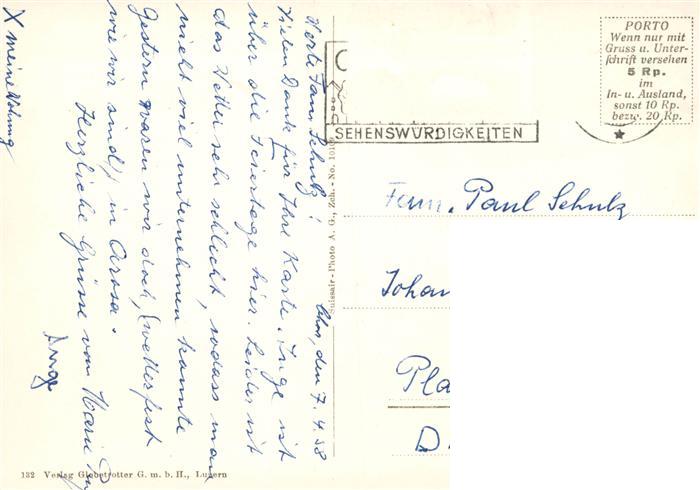 Chur, den 7.4.58
Werte Fam. Schulz!
Vielen Dank für Ihre Karte. Inge ist
über die Feiertage hier. Leider ist
das Wetter sehr schlecht, sodass man
nicht viel unternehmen kannte
Gestern waren wir doch, (wetterfest
wie wir sind) in Arosa.
Herzliche Grüsse von Marie
Inge
X meine Wohnung
SEHENSWÜRDIGKEITEN
PORTO
Wenn nur mit
Gruss u. Unter-
schrift versehen
5 Rp.
im
In- u. Ausland,
sonst 10 Rp.
bezw. 20 Rp.
Fam. Paul Schulz
Johan
Pla
D.
Suissair-Photo A. G., Zch. - No.
132 Verlag Globetrotter G. m. b. H., Luzern